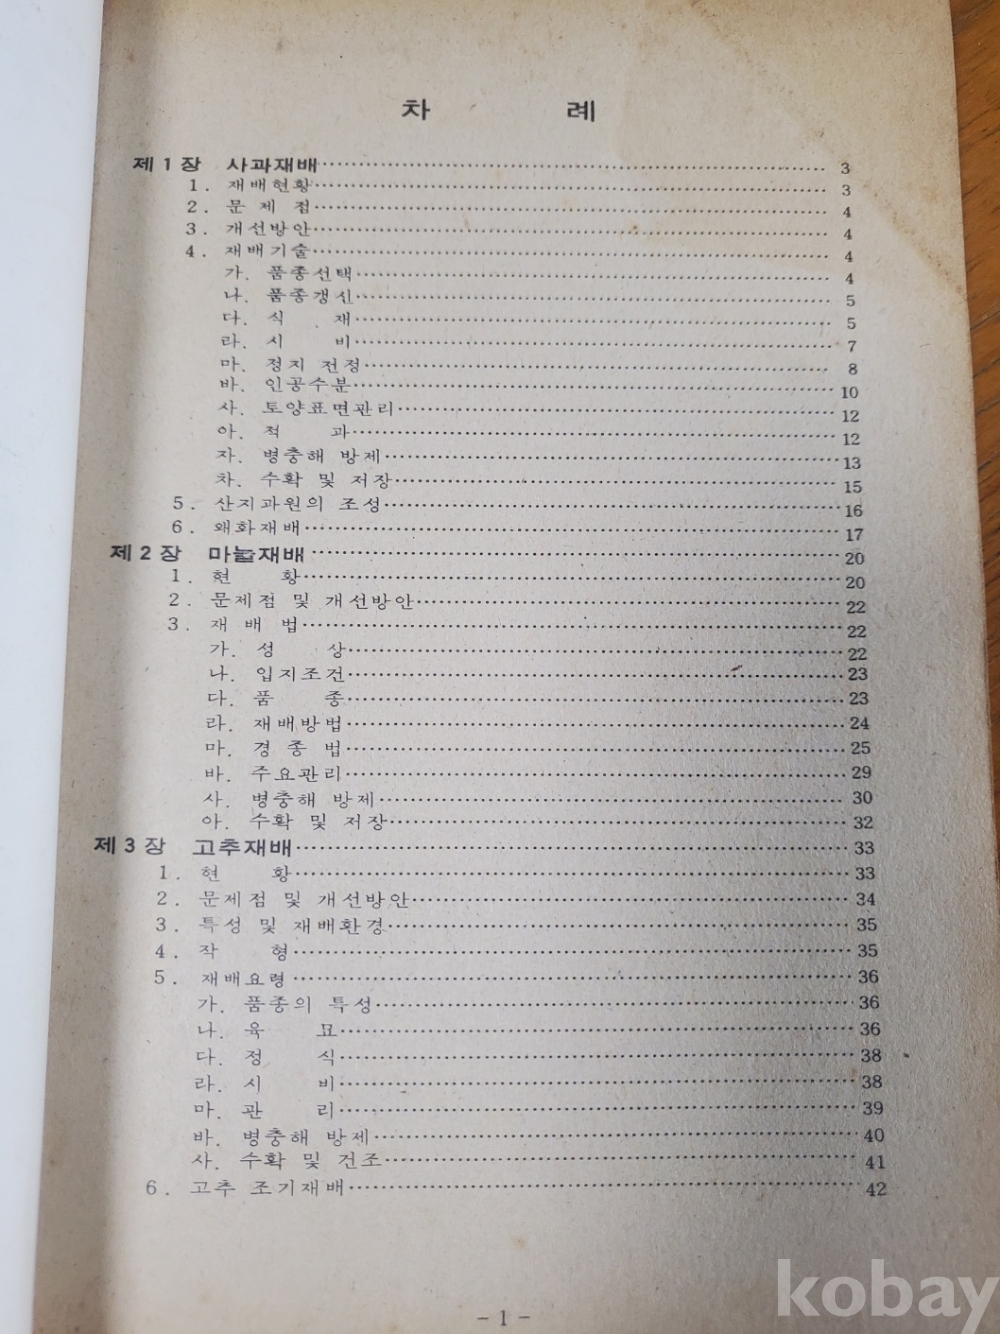 차 례
제1장 사과재배 3
1. 재배현황 3
2. 문 제 점 4
3. 개선방안 4
4. 재배기술 4
가. 품종선택 4
나. 품종갱신 5
다. 식 재 5
라. 시 비 7
마. 정지 전정 8
바. 인공수분 10
사. 토양표면관리 12
아. 적 과 12
자. 병충해 방제 13
차. 수확 및 저장 15
5. 산지과원의 조성 16
6. 왜화재배 17
제2장 마늘재배 20
1. 현 황 20
2. 문제점 및 개선방안 22
3. 재 배 법 22
가. 성 상 22
나. 입지조건 23
다. 품 종 23
라. 재배방법 24
마. 경 종 법 25
바. 주요관리 29
사. 병충해 방제 30
아. 수확 및 저장 32
제3장 고추재배 33
1. 현 황 33
2. 문제점 및 개선방안 34
3. 특성 및 재배환경 35
4. 작 형 35
5. 재배요령 36
가. 품종의 특성 36
나. 육 묘 36
다. 정 식 38
라. 시 비 38
마. 관 리 39
바. 병충해 방제 40
사. 수확 및 건조 41
6. 고추 조기재배 42
- 1 -
kobay